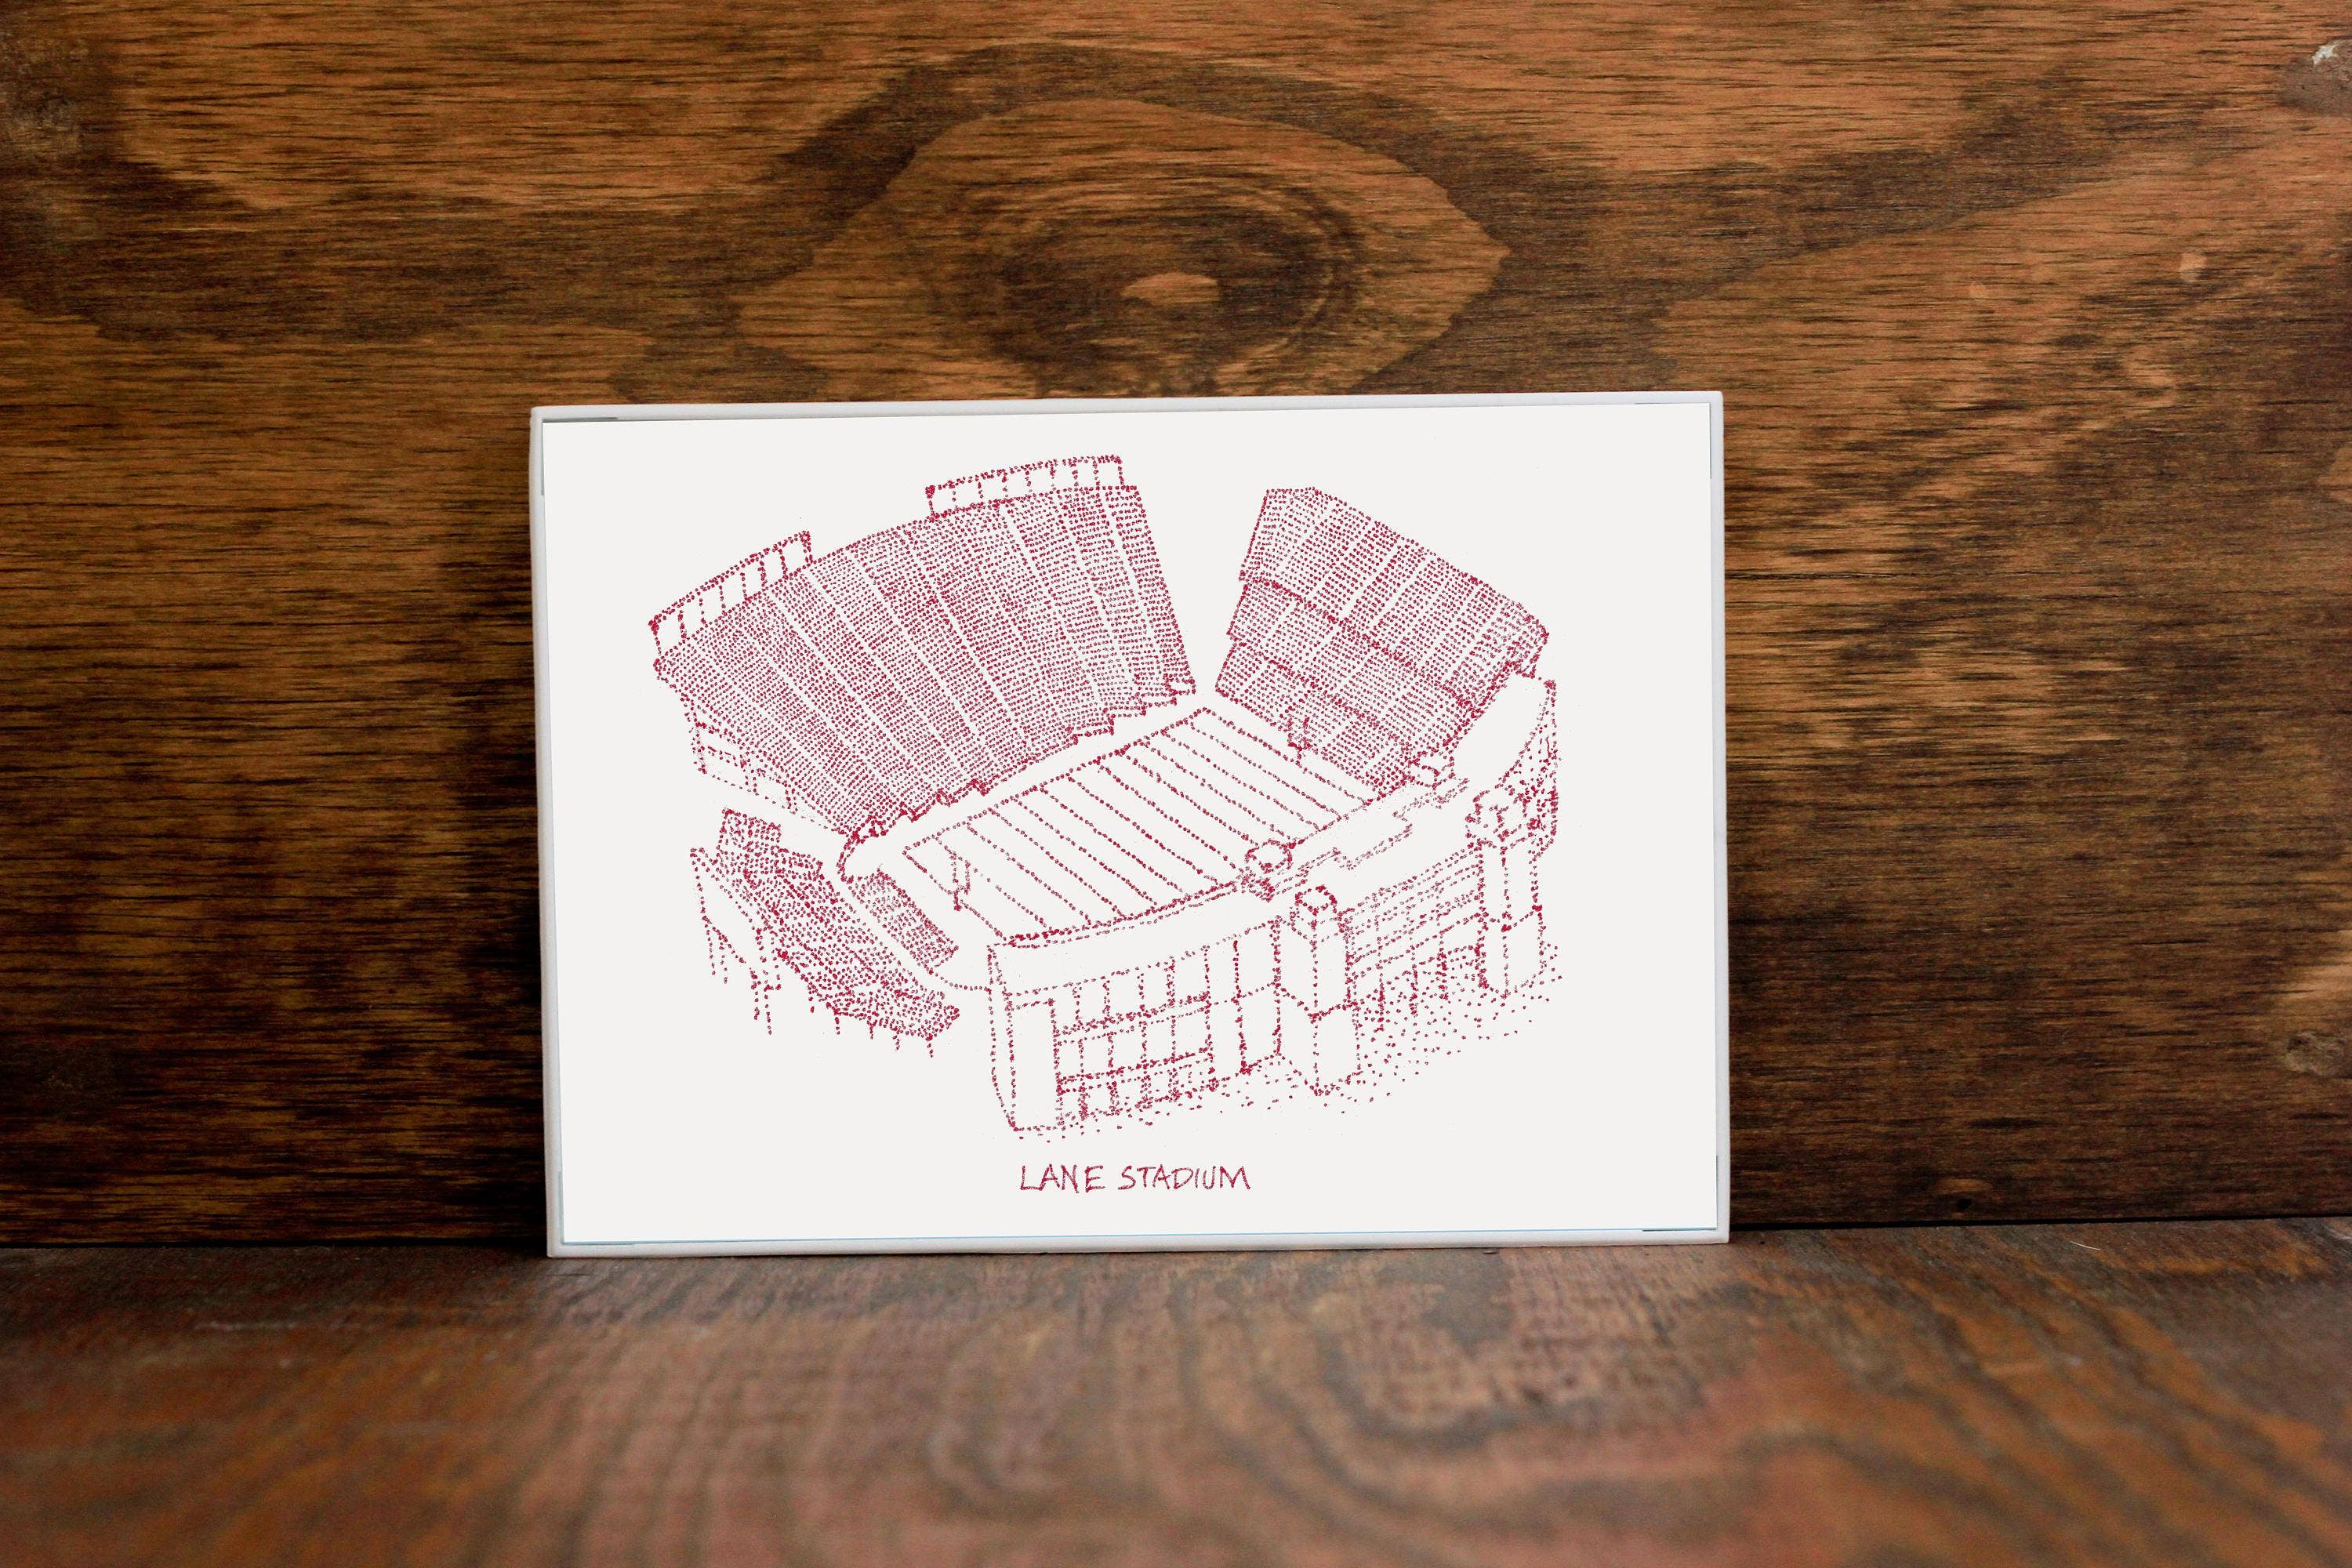 LANE STADIUM